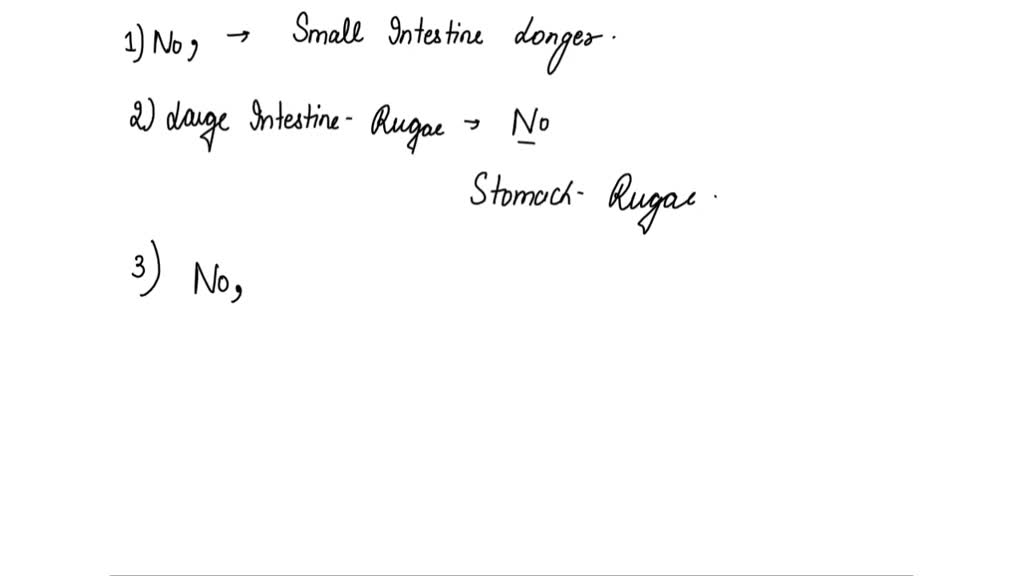 1) No, → Small Intestine longer.
2) Large Intestine - Rugae → No
Stomach - Rugae.
3) No,